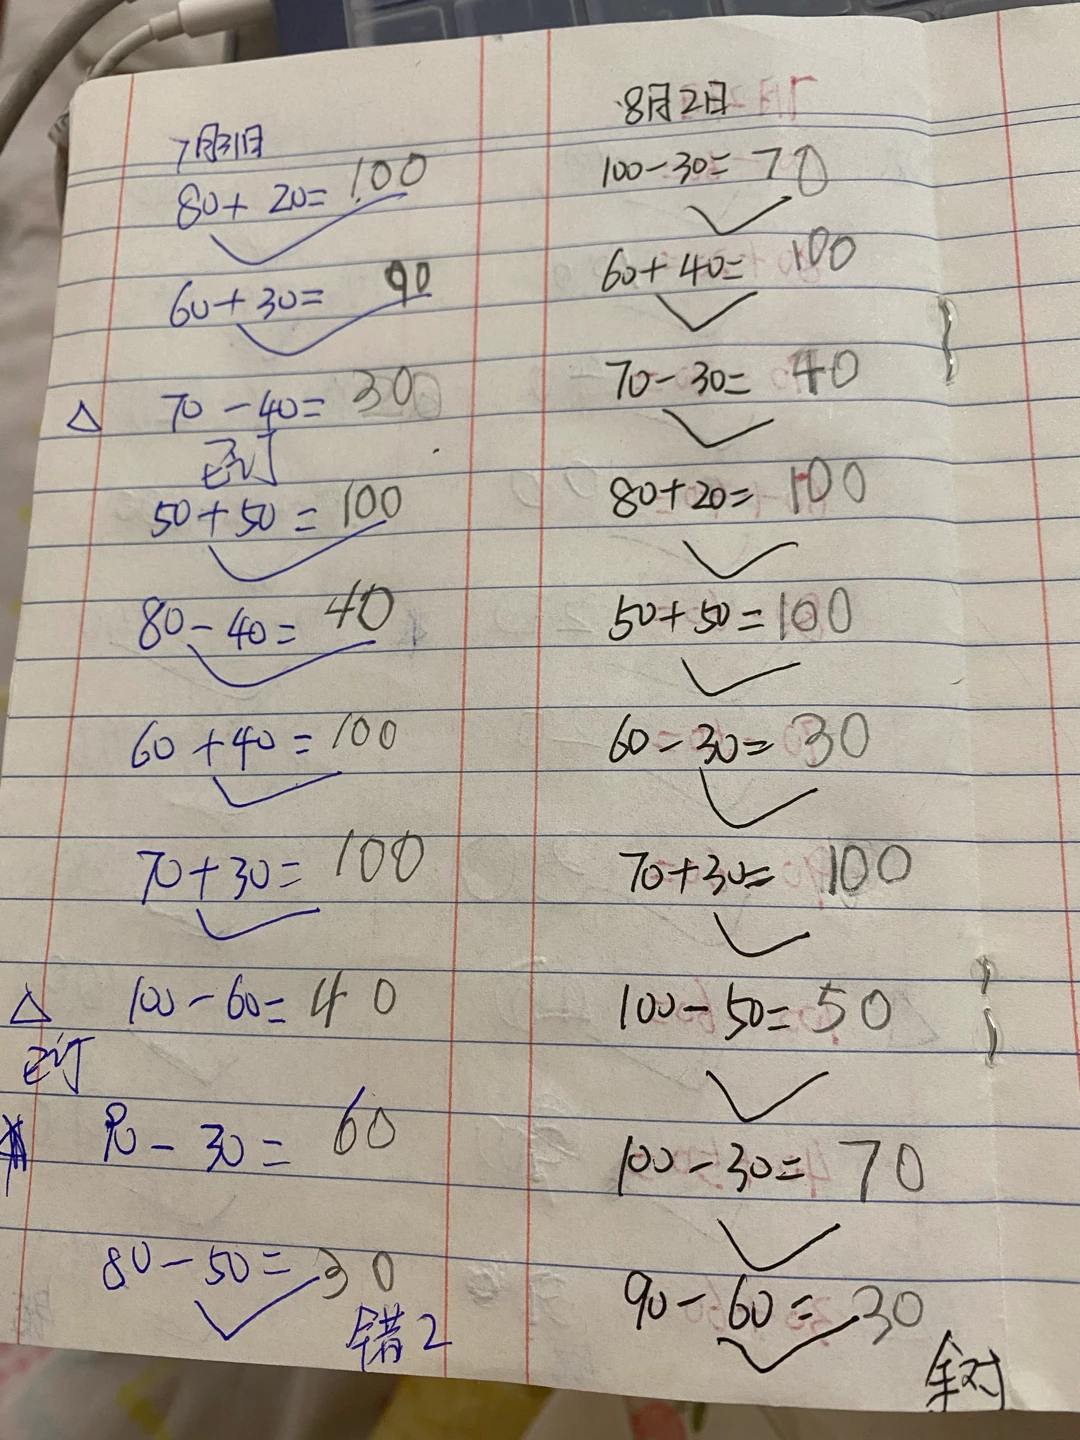 7月31日
80+20=100
60+30=90
△ 70-40=30
已订
50+50=100
80-40=40
60+40=100
70+30=100
△ 100-60=40
已订
90-30=60
80-50=30
错2
8月2日
100-30=70
60+40=100
70-30=40
80+20=100
50+50=100
60-30=30
70+30=100
100-50=50
100-30=70
90-60=30
全对